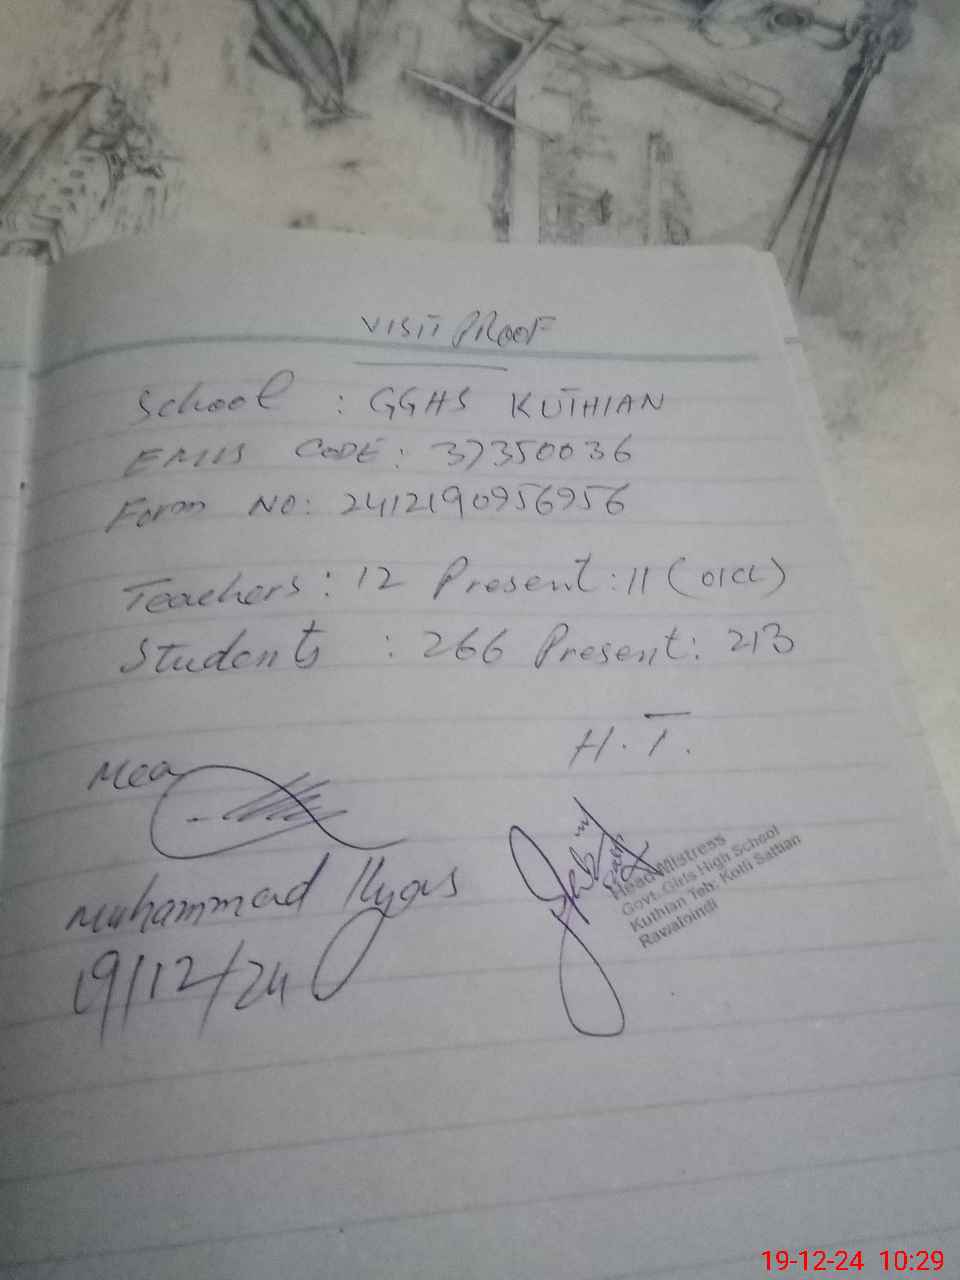 VISIT PROOF
School : GGHS KUTHIAN
EMIS CODE: 37350036
Form NO: 2412190956956
Teachers: 12 Present: 11 (01CL)
Students : 266 Present: 213
H.T.
Mea
Muhammad Ilyas
19/12/24
Head Mistress
Govt. Girls High School
Kuthian Teh: Kotli Sattian
Rawalpindi
19-12-24 10:29